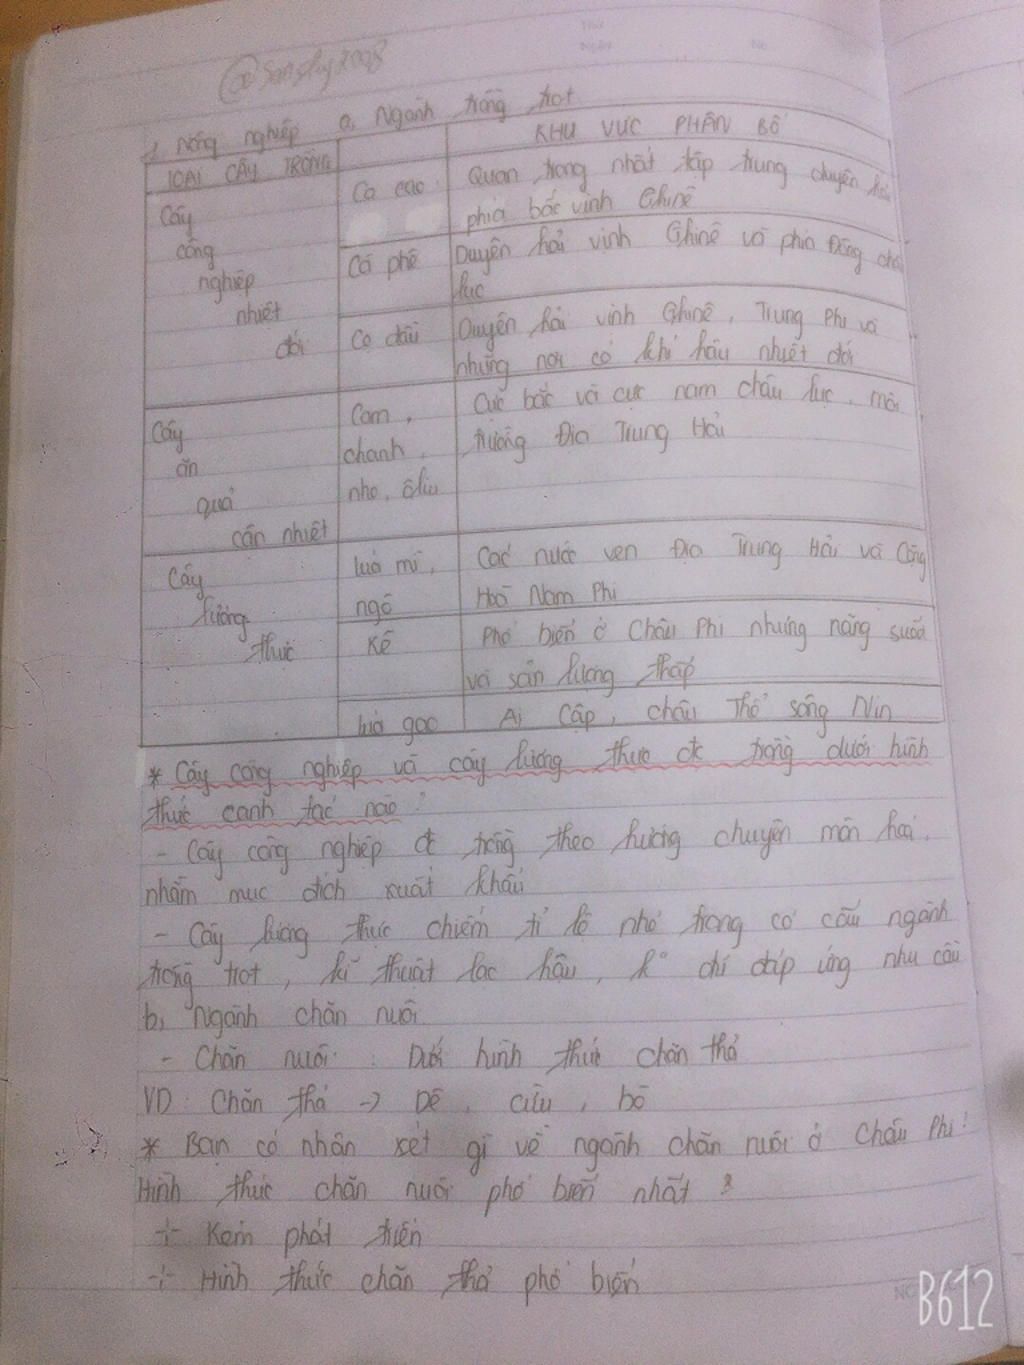 Thứ
Ngày No
1, Nông nghiệp a, Ngành trồng trọt
LOẠI CÂY TRỒNG KHU VỰC PHÂN BỐ
Cây công nghiệp nhiệt đới
Ca cao
Quan trọng nhất tập trung duyên hải
phía bắc vịnh Ghinê
Cà phê
Duyên hải vịnh Ghinê và phía Đông châu
lục
Cọ dầu
Duyên hải vịnh Ghinê, Trung Phi và
những nơi có khí hậu nhiệt đới
Cây ăn quả cận nhiệt
Cam,
chanh,
nho, ôliu
Cực bắc và cực nam châu lục, môi
trường Địa Trung Hải
Cây lương thực
lúa mì,
ngô
Các nước ven Địa Trung Hải và Cộng
Hoà Nam Phi
Kê
Phổ biến ở Châu Phi nhưng năng suất
và sản lượng thấp
lúa gạo
Ai Cập, châu Thổ sông Nin
* Cây công nghiệp và cây lương thực đc trồng dưới hình
thức canh tác nào?
- Cây công nghiệp đc trồng theo hướng chuyên môn hoá,
nhằm mục đích xuất khẩu
- Cây lương thực chiếm tỉ lệ nhỏ trong cơ cấu ngành
trồng trọt, kĩ thuật lạc hậu, k° chỉ đáp ứng nhu cầu
b, Ngành chăn nuôi
- Chăn nuôi: Dưới hình thức chăn thả
VD: Chăn thả -> Dê, cừu, bò
* Bạn có nhận xét gì về ngành chăn nuôi ở Châu Phi?
Hình thức chăn nuôi phổ biến nhất?
-:- Kém phát triển
-:- Hình thức chăn thả phổ biến
B612